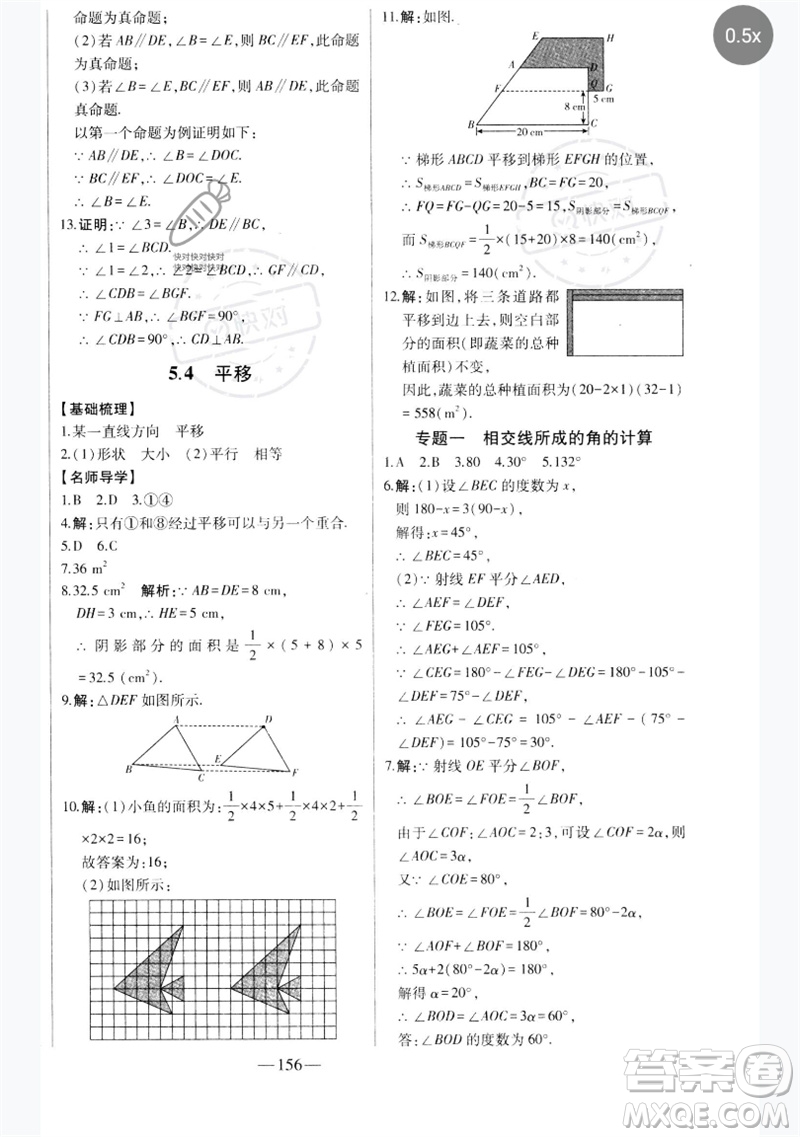 命题为真命题；
(2)若 AB∥DE，∠B=∠E，则 BC∥EF，此命题
为真命题；
(3)若 ∠B=∠E，BC∥EF，则 AB∥DE，此命题
真命题.
以第一个命题为例证明如下：
∵ AB∥DE，∴ ∠B=∠DOC.
∵ BC∥EF，∴ ∠DOC=∠E.
∴ ∠B=∠E.
13.证明：∵ ∠3=∠B，∴ DE∥BC，
∴ ∠1=∠BCD.
∵ ∠1=∠2，∴ ∠2=∠BCD，∴ CD∥FG，
∴ ∠CDB=∠BGF.
∵ FG⊥AB，∴ ∠BGF=90°.
∴ ∠CDB=90°，∴ CD⊥AB.
快对快对快对
快对快对快对
快对
5.4 平移
【基础梳理】
1.某一直线方向 平移
2.(1)形状 大小 (2)平行 相等
【名师导学】
1.B 2.D 3.①④
4.解：只有①和⑧经过平移可以与另一个重合.
5.D 6.C
7.36 m²
8.32.5 cm² 解析：∵ AB=DE=8 cm，
DH=3 cm，∴ HE=5 cm；
∴ 阴影部分的面积是 1/2 ×(5+8)×5
=32.5(cm²)
9.解：△DEF 如图所示.
A D
B C E F
10.解：(1)小鱼的面积为：1/2×4×5+1/2×4×2+1/2
×2×2=16；
故答案为：16；
(2)如图所示：
11.解：如图.
E H
A D
F Q G
8 cm 5 cm
B C
20 cm
∵ 梯形 ABCD 平移到梯形 EFGH 的位置，
∴ S梯形ABCD=S梯形EFGH，BC=FG=20，
∴ FQ=FG-QG=20-5=15，S阴影部分=S梯形BCQF，
而 S梯形BCQF=1/2×(15+20)×8=140(cm²)，
∴ S阴影部分=140(cm²).
12.解：如图，将三条道路都
平移到边上去，则空白部
分的面积(即蔬菜的总种
植面积)不变，
因此，蔬菜的总种植面积为(20-2×1)(32-1)
=558(m²).
专题一 相交线所成的角的计算
1.A 2.B 3.80 4.30° 5.132°
6.解：(1)设∠BEC 的度数为 x，
则 180-x=3(90-x)，
解得：x=45°，
∴ ∠BEC=45°.
(2)∵ 射线 EF 平分∠AED，
∴ ∠AEF=∠DEF，
∵ ∠FEG=105°.
∴ ∠AEG+∠AEF=105°，
∵ ∠CEG=180°-∠FEG-∠DEG=180°-105°-
∠DEF=75°-∠DEF，
∴ ∠AEG - ∠CEG = 105° - ∠AEF - (75° -
∠DEF)=105°-75°=30°.
7.解：∵ 射线 OE 平分∠BOF，
∴ ∠BOE=∠FOE=1/2∠BOF，
由于∠COF：∠AOC=2：3，可设∠COF=2α，则
∠AOC=3α，
又∵ ∠COE=80°，
∴ ∠BOE=∠FOE=1/2∠BOF=80°-2α，
∵ ∠AOF+∠BOF=180°，
∴ 5α+2(80°-2α)=180°，
解得 α=20°，
∴ ∠BOD=∠AOC=3α=60°，
答：∠BOD 的度数为 60°.
— 156 —
0.5x
答案圈
MXQE.COM